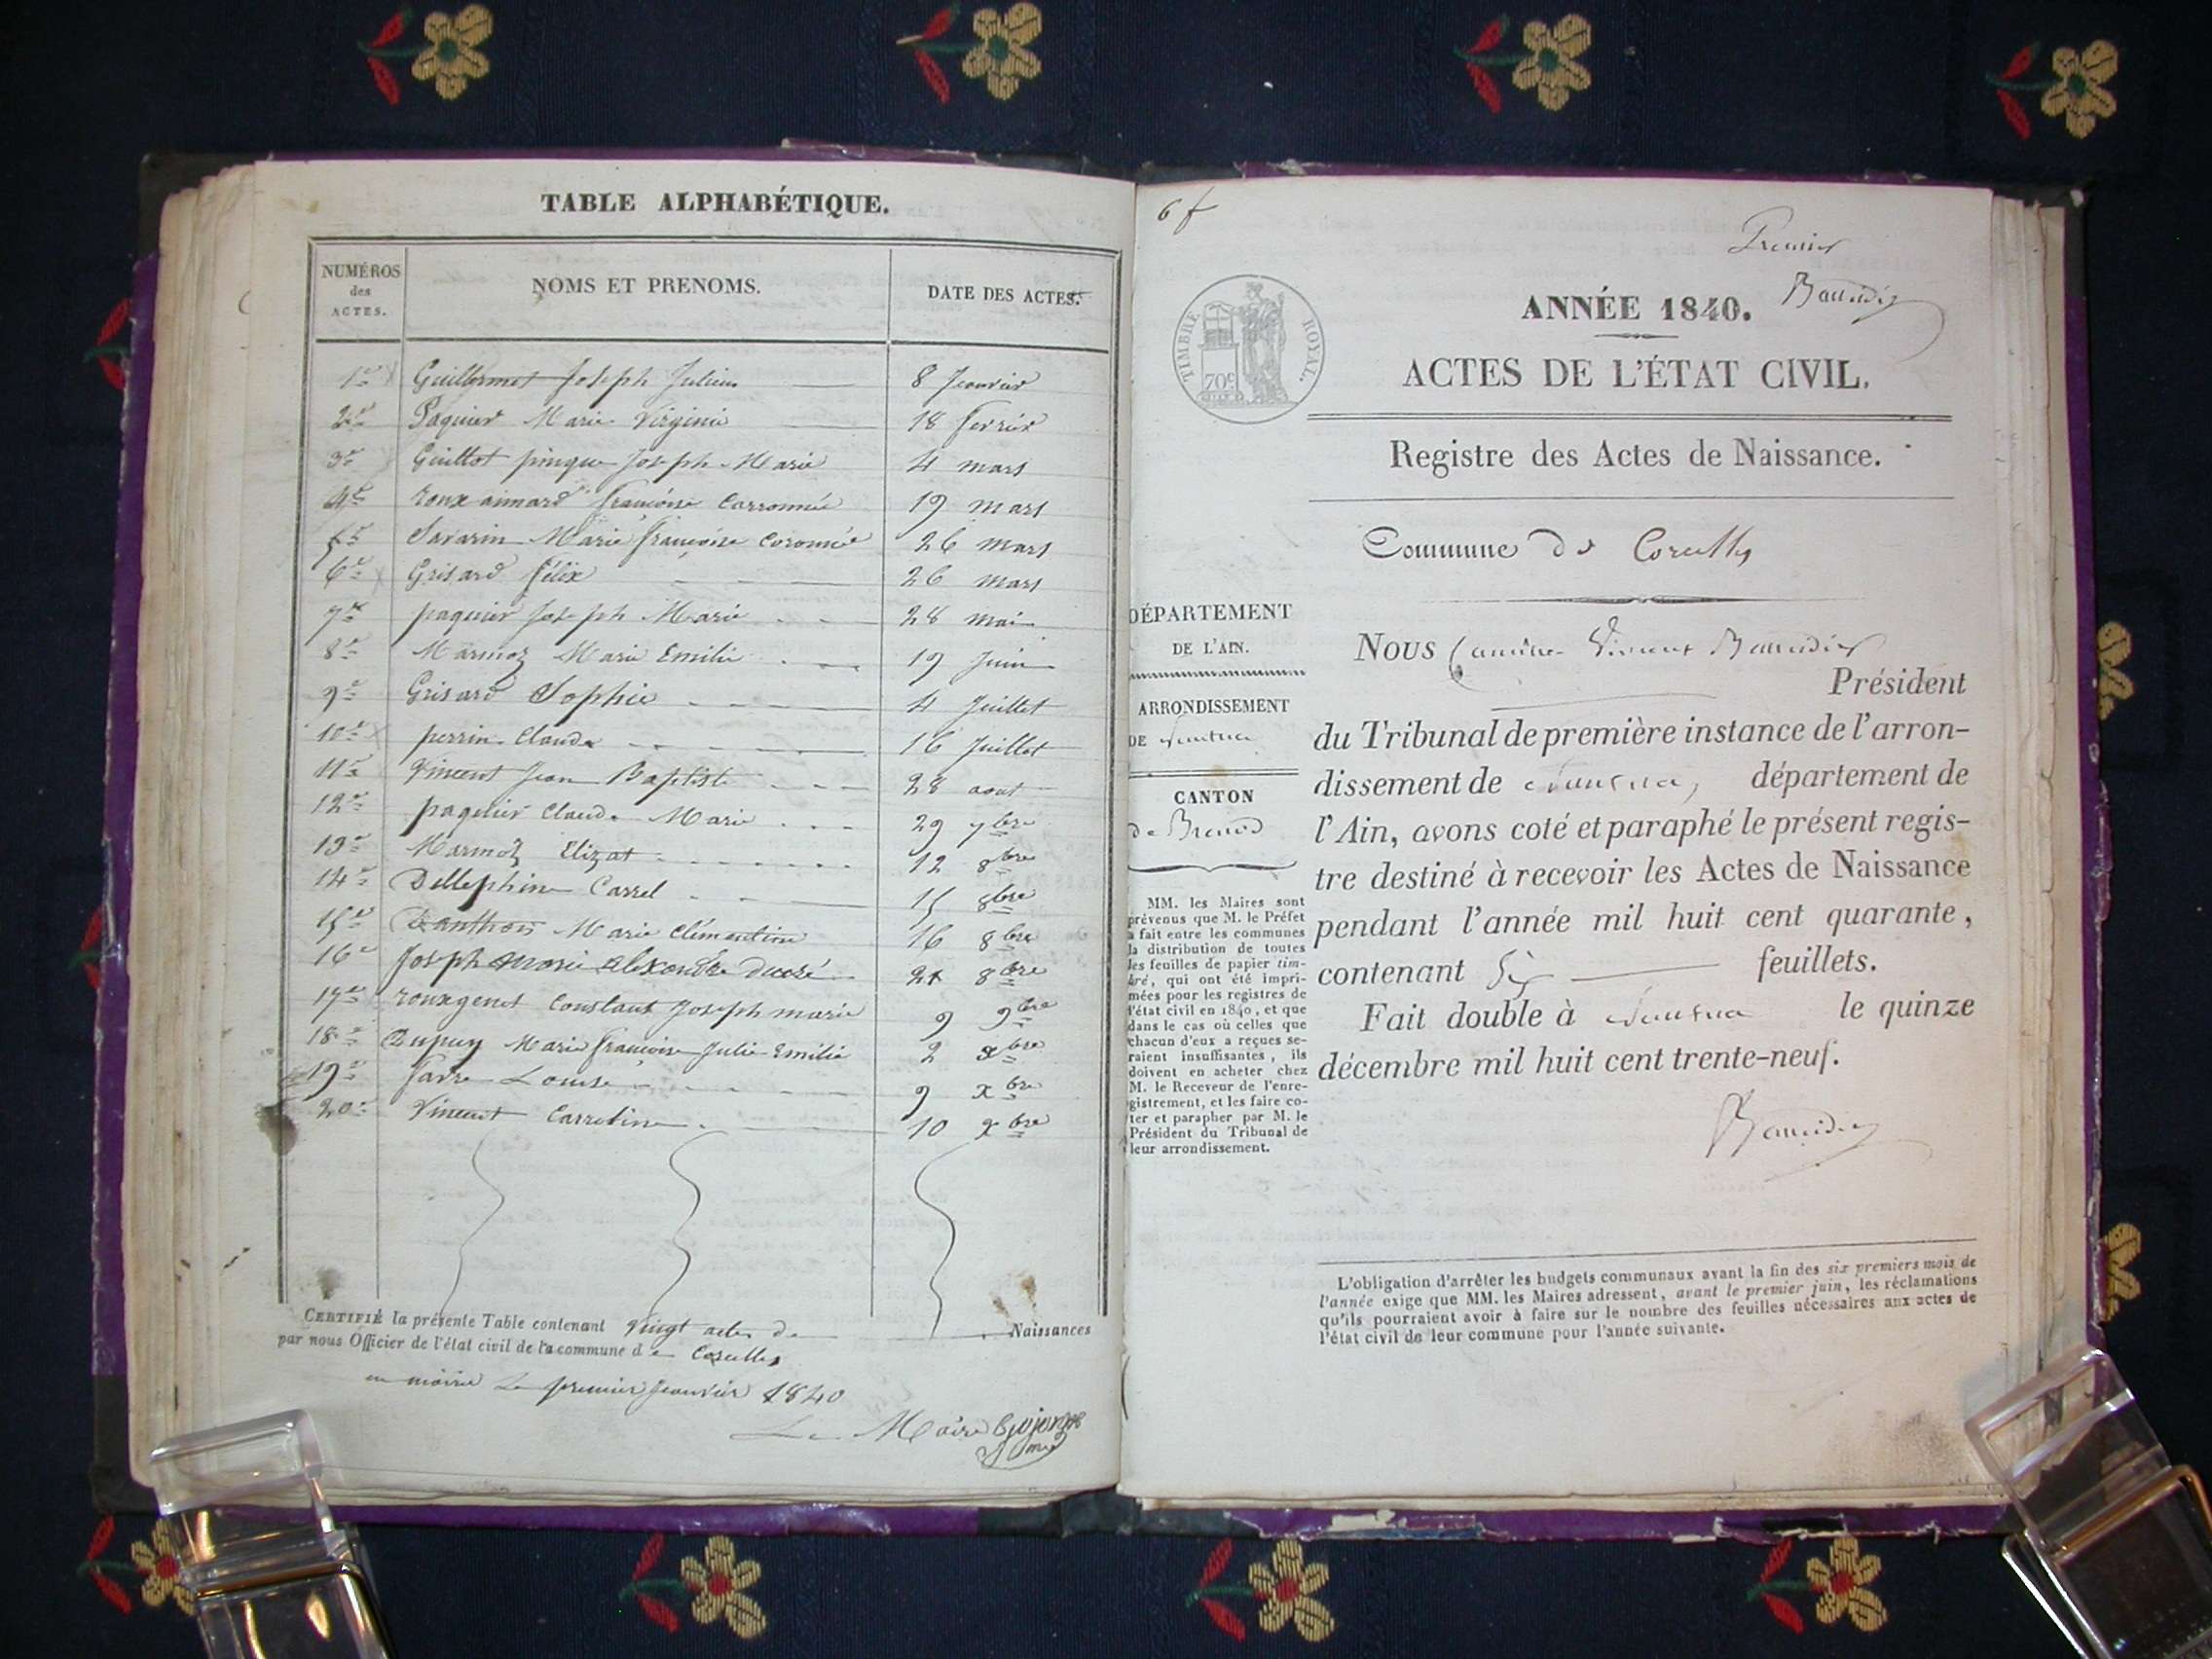 TABLE ALPHABÉTIQUE.
NUMÉROS
des
ACTES.
NOMS ET PRENOMS.
DATE DES ACTES.
1e Guillermet Joseph Julien 8 Janvier
2e Paquier Marie Virginie 18 fevrier
3e Guillot pingue Joseph Marie 4 mars
4e roux aimard francoise Carronnée 19 mars
5e Savarin Marie francoise Coronnée 26 mars
6e Grisard félix 26 mars
7e paquier Joseph Marie 28 mai
8e Marmoz Marie Emilie 19 Juin
9e Grisard Sophie 4 Juillet
10e perrin Claude 16 Juillet
11e Vincent Jean Baptiste 28 aout
12e paquier Claude Marie 29 7bre
13e Marmoz Elizat 12 8bre
14e Dellephine Carrel 15 8bre
15e Danthon Marie Clémentine 16 8bre
16e Joseph Marie alexandre Ducré 21 8bre
17e rouxgenet Constant Joseph marie 9 9bre
18e Dupuy Marie francoise Julie Emilie 2 xbre
19e favre Louise 9 xbre
20e Vincent Carrotine 10 xbre
CERTIFIÉ la présente Table contenant vingt actes de Naissances
par nous Officier de l'état civil de la commune de Corcelles
en mairie Le premier Janvier 1840
Le Maire
6 f
Premier
Baudier
TIMBRE ROYAL.
70c
ANNÉE 1840.
ACTES DE L'ÉTAT CIVIL.
Registre des Actes de Naissance.
Commune de Corcelles
DÉPARTEMENT
DE L'AIN.
ARRONDISSEMENT
DE Nantua
CANTON
de Brenod
MM. les Maires sont
prévenus que M. le Préfet
a fait entre les communes
la distribution de toutes
les feuilles de papier tim-
bré, qui ont été impri-
mées pour les registres de
l'état civil en 1840, et que
dans le cas où celles que
chacun d'eux a reçues se-
raient insuffisantes, ils
doivent en acheter chez
M. le Receveur de l'enre-
gistrement, et les faire co-
ter et parapher par M. le
Président du Tribunal de
leur arrondissement.
Nous Vincent
Président
du Tribunal de première instance de l'arron-
dissement de Nantua, département de
l'Ain, avons coté et paraphé le présent regis-
tre destiné à recevoir les Actes de Naissance
pendant l'année mil huit cent quarante,
contenant Six feuillets.
Fait double à Nantua le quinze
décembre mil huit cent trente-neuf.
L'obligation d'arrêter les budgets communaux avant la fin des six premiers mois de
l'année exige que MM. les Maires adressent, avant le premier juin, les réclamations
qu'ils pourraient avoir à faire sur le nombre des feuilles nécessaires aux actes de
l'état civil de leur commune pour l'année suivante.